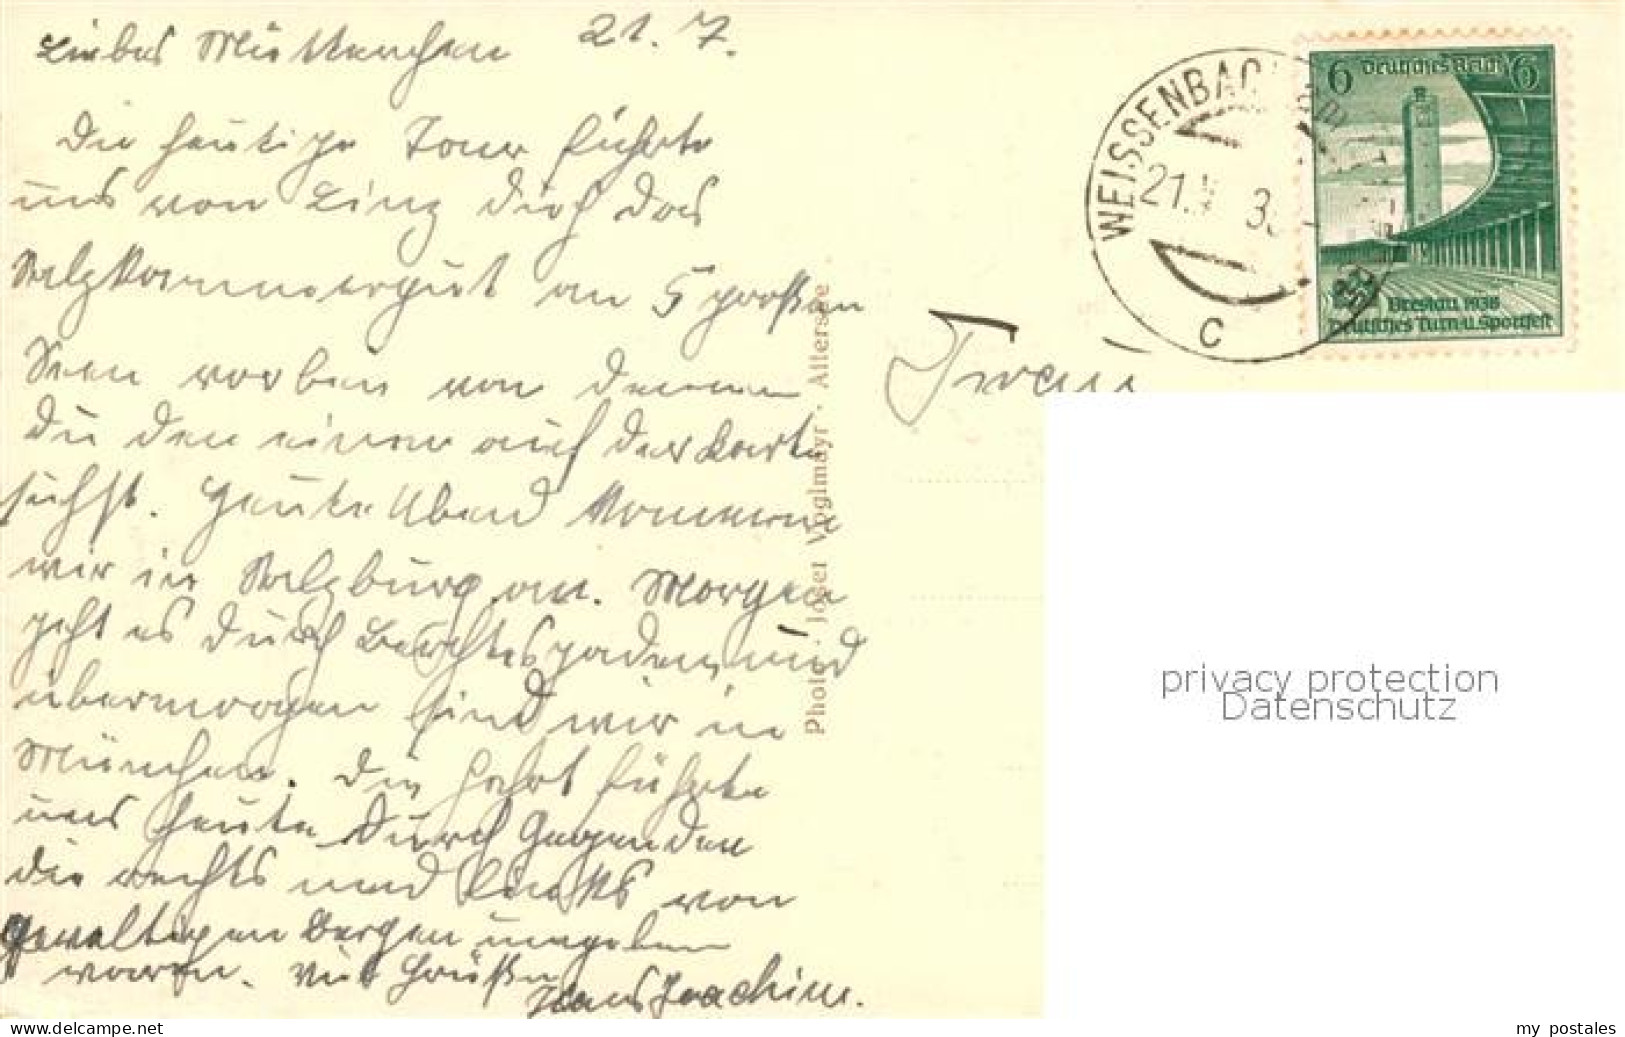 Liebes Mütterchen 21. 7.
Die heutige Tour führte
uns von Linz durch das
Salzkammergut an 5 großen
Seen vorbei von denen
Du den einen auf der Karte
siehst. Heute Abend kommen
wir in Salzburg an. Morgen
geht es durch Berchtesgaden und
übermorgen sind wir in
München. Die Fahrt führte
uns heute durch Gegenden
die rechts und links von
gewaltigen Bergen umgeben
waren. Viele Grüße
Hans Joachim.
Photo: Josef Voglmayr · Attersee
WEISSENBACH
21. 3
C
6 Deutsches Reich 6
Breslau 1938
Deutsches Turn- u. Sportfest
Frau
privacy protection
Datenschutz
www.delcampe.net
my postales